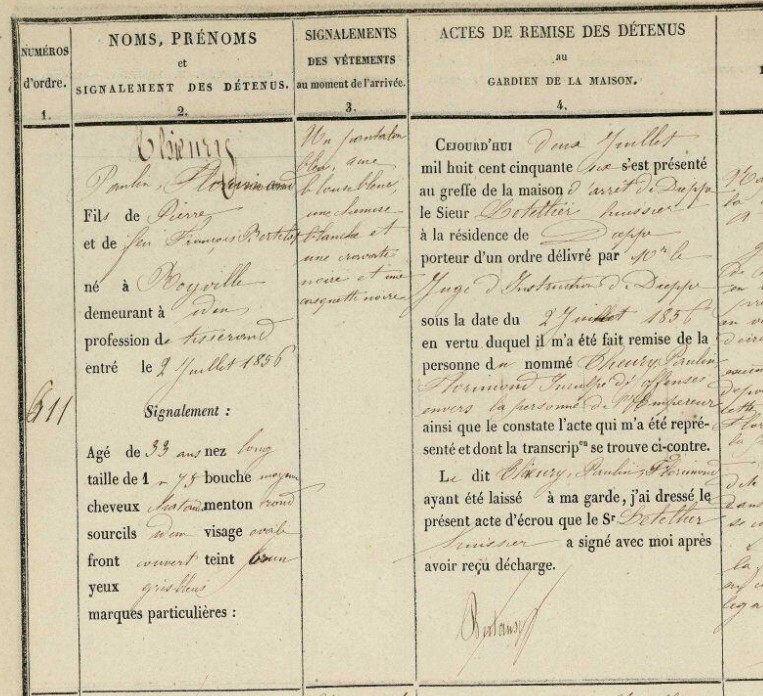 NUMÉROS
d'ordre.
1.
611
NOMS, PRÉNOMS
et
SIGNALEMENT DES DÉTENUS.
2.
Thieury
Paulin, Florimond
Fils de Pierre
et de feu François Bertelot
né à Royville
demeurant à idem
profession de tisserand
entré le 2 Juillet 1856
Signalement :
Agé de 33 ans nez long
taille de 1 m 75 bouche moyenne
cheveux chatains menton rond
sourcils idem visage ovale
front couvert teint brun
yeux gris bleus
marques particulières :
SIGNALEMENTS
DES VÉTEMENTS
au moment de l'arrivée.
3.
Un pantalon
bleu, une
blouse bleue,
une chemise
blanche et
une cravate
noire et une
casquette noire
ACTES DE REMISE DES DÉTENUS
au
GARDIEN DE LA MAISON.
4.
CEJOURD'HUI deux Juillet
mil huit cent cinquante six s'est présenté
au greffe de la maison d'arrêt de Dieppe
le Sieur Letellier huissier
à la résidence de Dieppe
porteur d'un ordre délivré par Mr le
Juge d'Instruction de Dieppe
sous la date du 2 Juillet 1856
en vertu duquel il m'a été fait remise de la
personne du nommé Thieury Paulin
Florimond Inculpé d'offenses
envers la personne de l'Empereur
ainsi que le constate l'acte qui m'a été repré-
senté et dont la transcripon se trouve ci-contre.
Le dit Thieury, Paulin, Florimond
ayant été laissé à ma garde, j'ai dressé le
présent acte d'écrou que le Sr Letellier
huissier a signé avec moi après
avoir reçu décharge.